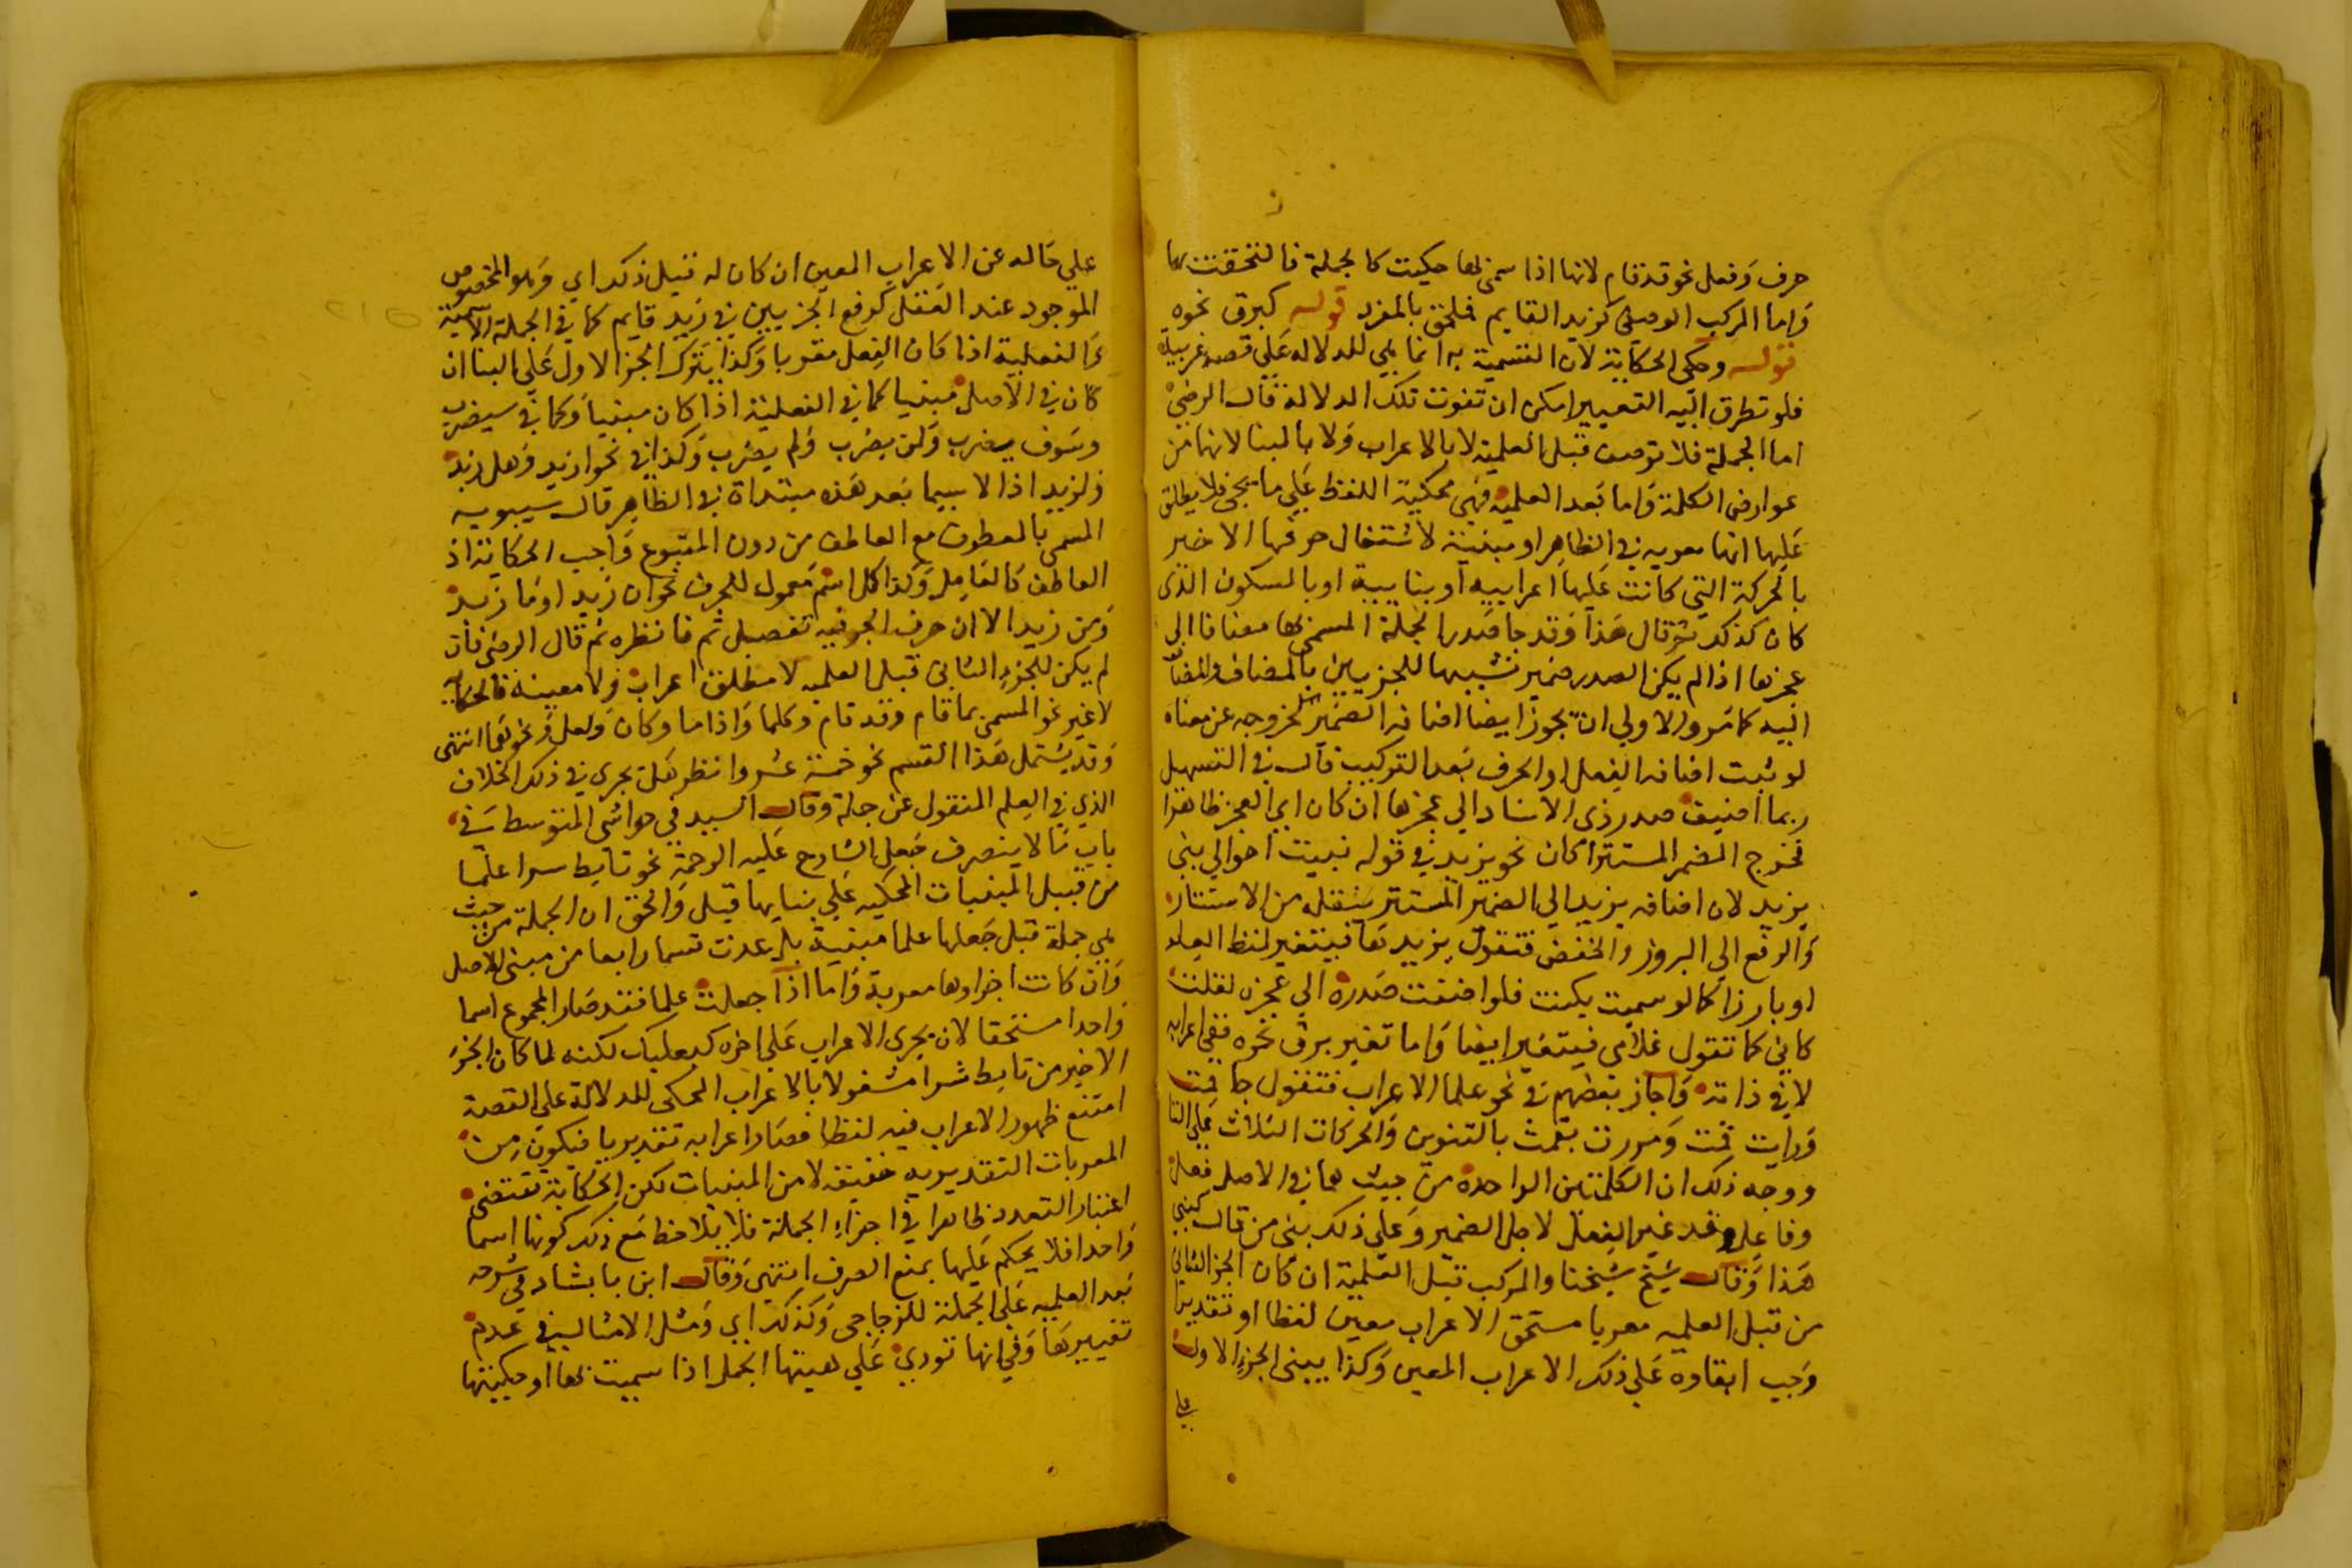 حرف وفعل نحو قد قام لانها اذا سمى بها حكيت كالجملة فالتحقت بها
واما المركب الوصفى كزيد القايم فملحق بالمفرد قوله كبرق نحوه
قوله وحكى الحكاية لان التسمية به انما هي للدلالة علي قصة غريبة
فلو تطرق اليه التغيير امكن ان تفوت تلك الدلالة قال الرضى
اما الجملة فلا توصف قبل العلمية لا بالاعراب ولا بالبنا لانها من
عوارض الكلمة واما بعد العلمية فهي محكية اللفظ علي ما يجي فلا يطلق
عليها انها معربه في الظاهر او مبنية لاشتغال حرفها الاخير
بالحركة التي كانت عليها اعرابية او بنايية او بالسكون الذى
كان كذلك ثم قال هذا وقد جا صدر الجملة المسمى بها مضافا الى
عجزها اذا لم يكن الصدر ضمير تشبيها للجزيين بالمضاف والمضاف
اليه كما مر والاولي ان يجوز ايضا اضافه الضمير لخروجه عن معناه
لو ثبت اضافه الفعل او الحرف بعد التركيب قال في التسهيل
ربما اضيف صدر ذى الاسناد الي عجزها ان كان اي العجز ظاهرا
فخرج المضمر المستتر كان نحو يزيد في قوله نبيت اخوالي بني
يزيد لان اضافه يزيد الي الضمير المستتر ينقله من الاستتار
والرفع الي البروز والخفض فتقول يزيدها فيتغير لفظ العلم
او بارزا كما لو سميت بكنت فلو اضفت صدره الي عجزه لقلت
كاني كما تقول غلامى فيتغير ايضا واما تغير برق نحره ففي اعرابه
لا في ذاته واجاز بعضهم في نحو علما الاعراب فتقول جا قمت
ورايت قمت ومررت بقمت بالتنوين والحركات الثلاث علي التا
ووجه ذلك ان الكلمتين الواحدة من حيث هما في الاصل فعل
وفاعل وقد غير الفعل لاجل الضمير وعلي ذلك بنى من قال كنتي
هذا وقال شيخ شيخنا والمركب قبل العلمية ان كان الجز الثاني
من قبل العلميه معربا مستحق الاعراب معين لفظا او تقديرا
وجب ابقاوه علي ذلك الاعراب المعين وكذا يبنى الجزء الاول
علي
علي حاله عن الاعراب المعين ان كان له قبل ذلك اي وهو المخصوص
الموجود عند النقل كرفع الجزيين في زيد قايم كما في الجملة الاسمية
والفعلية اذا كان الفعل معربا وكذا يترك الجز الاول علي البنا ان
كان في الاصل مبنيا كما في الفعلية اذا كان مبنيا وكما في سيضرب
وسوف يضرب ولن يضرب ولم يضرب وكذا في نحو ازيد وهل زيد
ولزيد اذ الاسيما بعد هذه مبتداة في الظاهر قال سيبويه
المسمى بالمعطوف مع العاطف من دون المتبوع واجب الحكاية اذ
العاطف كالعامل وكذا كل اسم معمول للحرف نحو ان زيد او ما زيد
ومن زيد الا ان حرف الجر فيه تفصيل ثم فانظره ثم قال الرضى فان
لم يكن للجزء الثاني قبل العلميه لا مطلق اعراب ولا معينه فالحكاية
لا غير نحو المسمى بما قام وقد قام وكلما واذا ما وكان ولعل ونحوها انتهى
وقد يشتمل هذا القسم نحو خمسة عشر وانظر هل يجري في ذلك الخلاف
الذي في العلم المنقول عن جملة وقال السيد في حواشي المتوسط في
باب ما لا ينصرف جعل الشارح عليه الرحمة نحو تابط شرا علما
من قبيل المبنيات المحكيه علي بنايها قيل والحق ان الجملة من حيث
هي جملة قبل جعلها علما مبنية بل عدت قسما رابعا من مبنى الاصل
وان كانت اجزاوها معربة واما اذا جعلت علما فقد صار المجموع اسما
واحدا مستحقا لان يجرى الاعراب علي اخره كبعلبك لكنه لما كان الجز
الاخير من تابط شرا مشغولا بالاعراب المحكى للدلالة علي القصة
امتنع ظهور الاعراب فيه لفظا فصار اعرابه تقديريا فيكون من
المعربات التقديريه حقيقه لا من المبنيات لكن الحكاية تقتضى
اعتبار التعدد ظاهرا في اجزاء الجملة فلا يلاحظ مع ذلك كونها اسما
واحدا فلا يحكم عليها بمنع الصرف انتهى وقال ابن بابشاد في شرحه
بعد العلميه علي الجملة للزجاجى وكذلك اي ومثل الامثال في عدم
تغييرها وفي انها تودي علي هيتها الجمل اذا سميت بها او حكيتها